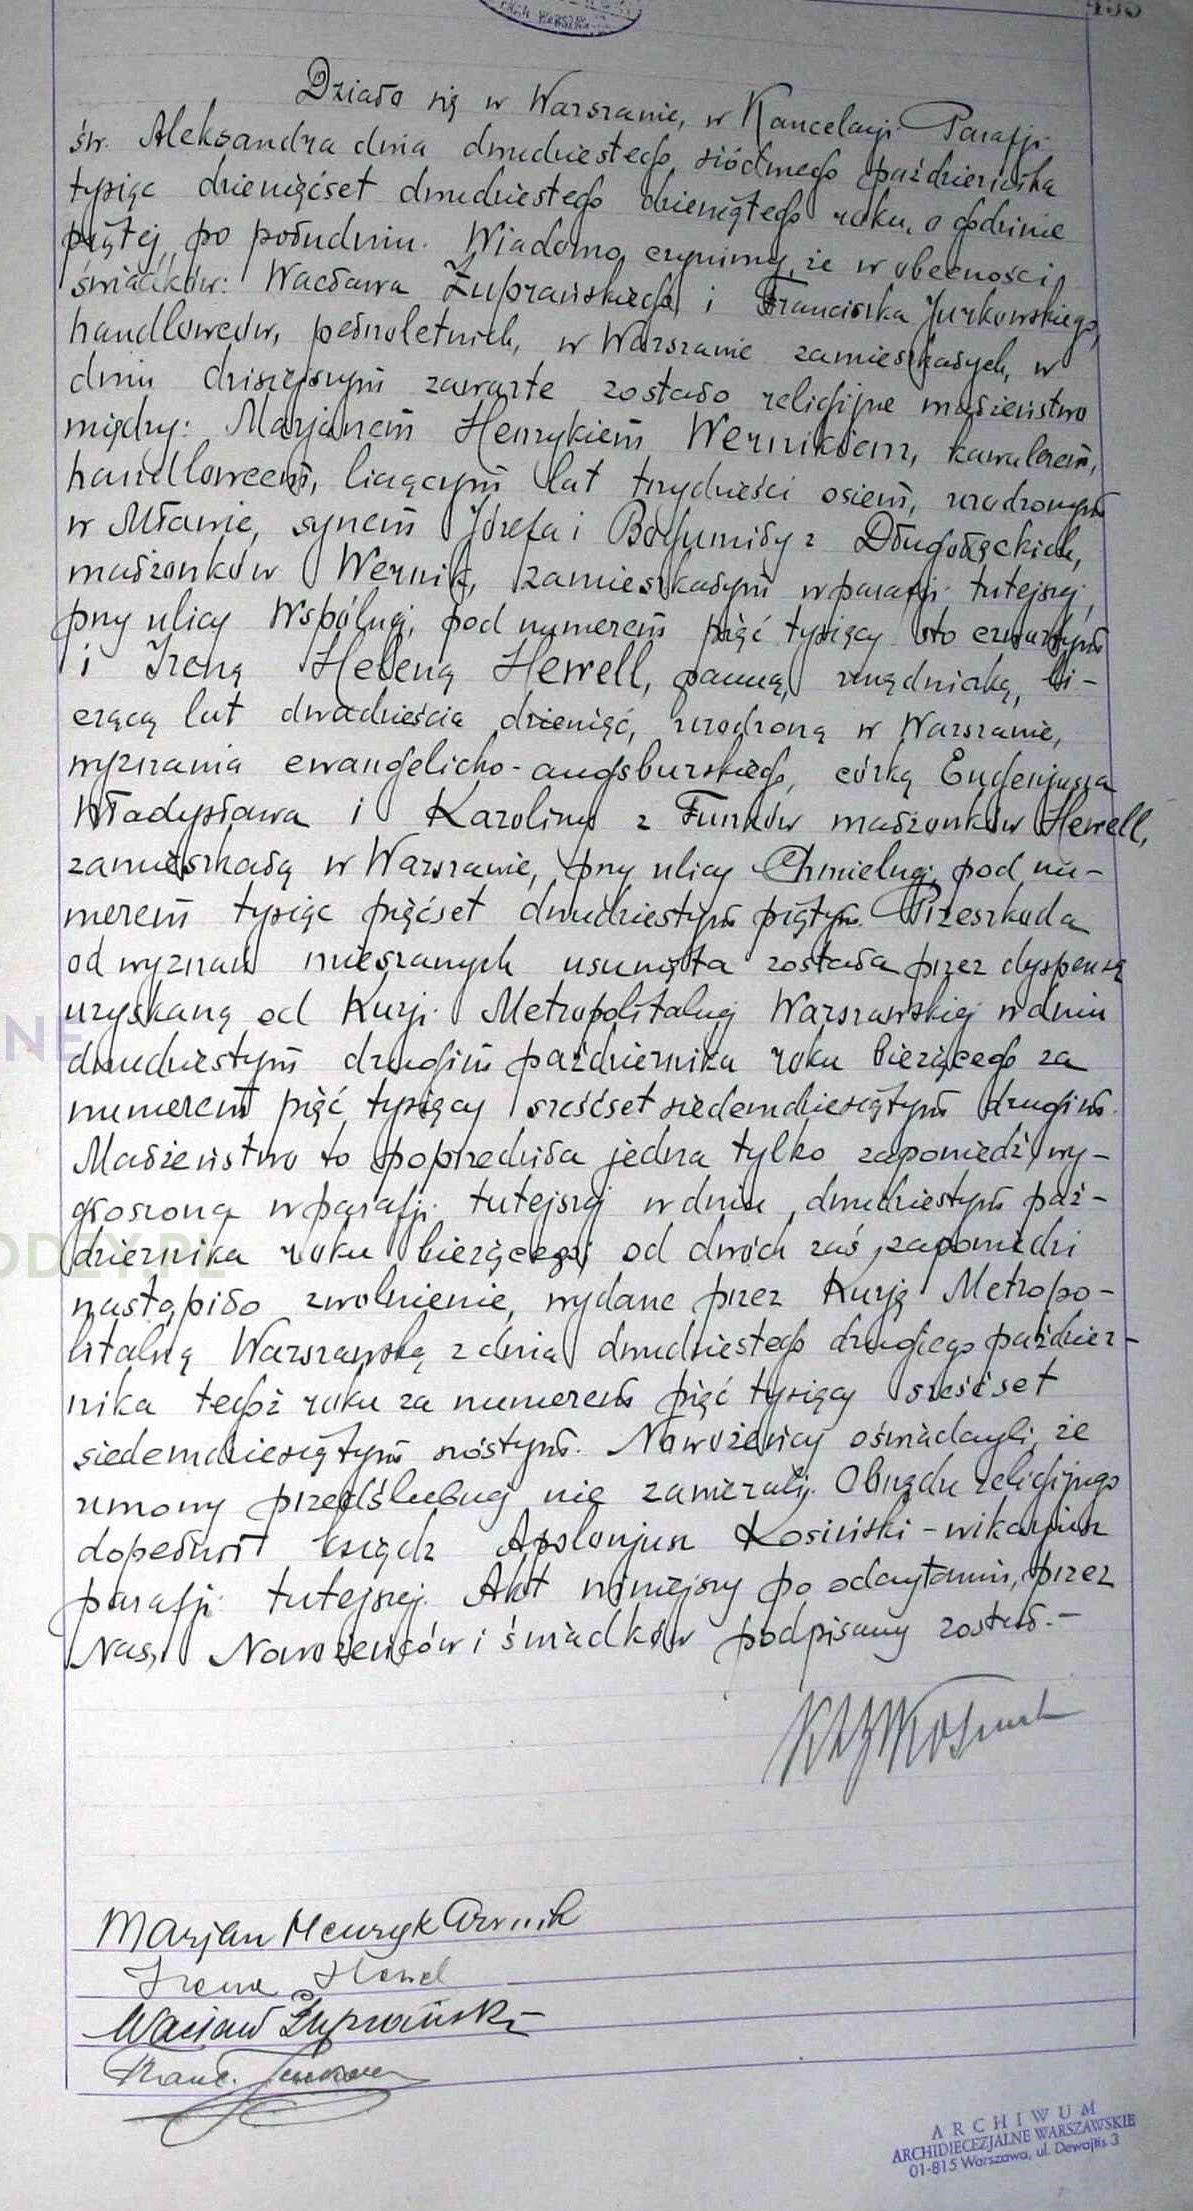 455
Działo się w Warszawie, w Kancelarji Parafji
św. Aleksandra dnia dwudziestego siódmego października
tysiąc dziewięćset dwudziestego dziewiątego roku, o godzinie
piątej po południu. Wiadomo czynimy, że w obecności
świadków: Wacława Żuprańskiego i Franciszka Jurkowskiego,
handlowców, pełnoletnich, w Warszawie zamieszkałych, w
dniu dzisiejszym zawarte zostało religijne małżeństwo
między: Marjanem Henrykiem Wernikiem, kawalerem,
handlowcem, liczącym lat trzydzieści osiem, urodzonym
w Mławie, synem Józefa i Bogumiły z Długołęckich,
małżonków Wernik, zamieszkałym w parafji tutejszej,
przy ulicy Wspólnej, pod numerem pięć tysięcy sto czwartym
i Ireną Heleną Hewell, panną, urzędniczką, li-
czącą lat dwadzieścia dziewięć, urodzoną w Warszawie,
wyznania ewangelicko-augsburskiego, córką Eugenjusza
Władysława i Karoliny z Funków małżonków Hewell,
zamieszkałą w Warszawie, przy ulicy Chmielnej, pod nu-
merem tysiąc pięćset dwudziestym piątym. Przeszkoda
od wyznań mieszanych usunięta została przez dyspensę
uzyskaną od Kurji Metropolitalnej Warszawskiej w dniu
dwudziestym drugim października roku bieżącego za
numerem pięć tysięcy sześćset siedemdziesiątym drugim.
Małżeństwo to poprzedziła jedna tylko zapowiedź, wy-
głoszona w parafji tutejszej w dniu dwudziestym paź-
dziernika roku bieżącego; od dwóch zaś zapowiedzi
nastąpiło zwolnienie, wydane przez Kurję Metropo-
litalną Warszawską z dnia dwudziestego drugiego paździer-
nika tegoż roku za numerem pięć tysięcy sześćset
siedemdziesiątym szóstym. Nowożeńcy oświadczyli, że
umowy przedślubnej nie zawierali. Obrzędu religijnego
dopełnił ksiądz Apolonjusz Kosiński - wikarjusz
parafji tutejszej. Akt niniejszy po odczytaniu, przez
Nas, Nowożeńców i świadków podpisany został.-
Marjan Henryk Wernik
Irena Hewel
Wacław Żuprański
Franc.
ARCHIWUM
ARCHIDIECEZJALNE WARSZAWSKIE
01-815 Warszawa, ul. Dewajtis 3